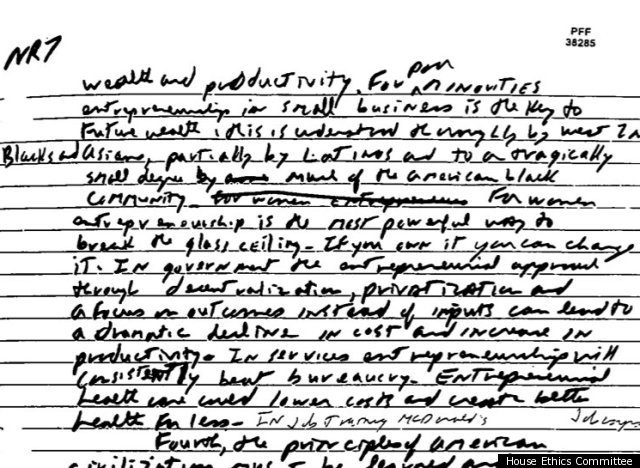 PFF
38285
NR7
wealth and productivity. For poor MINORITIES
entrepreneurship in small business is the key to
future wealth. this is understood thoroughly by West In
Blacks and Asians, partially by Latinos and to a tragically
small degree by much of the american black
community. for women entrepreneurs For women
entrepreneurship is the most powerful way to
break the glass ceiling. If you own it you can change
it. In government the entrepreneurial approach
through decentralization, privatization and
a focus on outcomes instead of inputs can lead to
a dramatic decline in cost and increase in
productivity. In services entrepreneurship will
consistently beat bureaucracy. Entrepreneurial
health care could lower costs and create better
health for less. IN Job Training McDonald's
Fourth, the principles of American
civilization must be learned and
House Ethics Committee